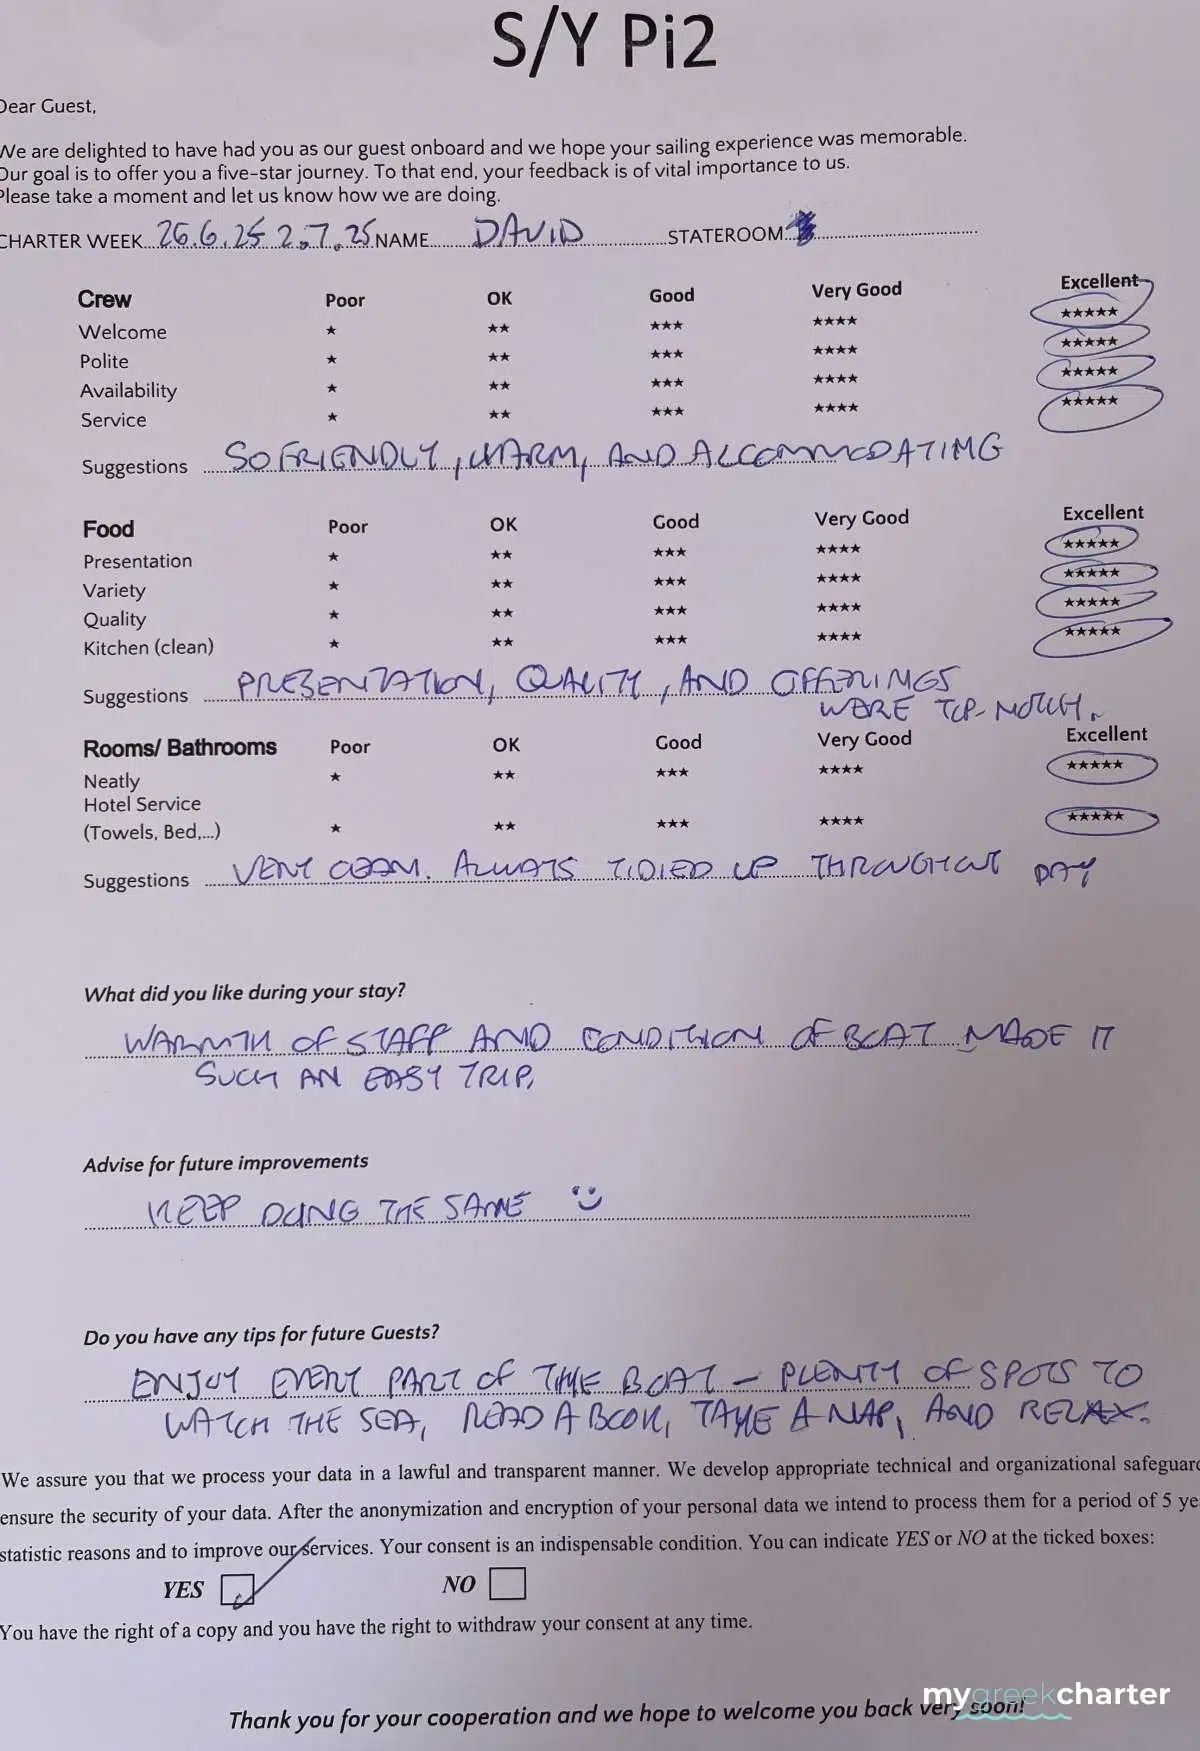 S/Y Pi2
Dear Guest,
We are delighted to have had you as our guest onboard and we hope your sailing experience was memorable.
Our goal is to offer you a five-star journey. To that end, your feedback is of vital importance to us.
Please take a moment and let us know how we are doing.
CHARTER WEEK 26.6.25 2.7.25 NAME DAVID STATEROOM
Crew Poor OK Good Very Good Excellent
Welcome ★ ★★ ★★★ ★★★★ ★★★★★
Polite ★ ★★ ★★★ ★★★★ ★★★★★
Availability ★ ★★ ★★★ ★★★★ ★★★★★
Service ★ ★★ ★★★ ★★★★ ★★★★★
Suggestions SO FRIENDLY, WARM, AND ACCOMMODATING
Food Poor OK Good Very Good Excellent
Presentation ★ ★★ ★★★ ★★★★ ★★★★★
Variety ★ ★★ ★★★ ★★★★ ★★★★★
Quality ★ ★★ ★★★ ★★★★ ★★★★★
Kitchen (clean) ★ ★★ ★★★ ★★★★ ★★★★★
Suggestions PRESENTATION, QUALITY, AND OFFERINGS
WERE TOP-NOTCH.
Rooms/ Bathrooms Poor OK Good Very Good Excellent
Neatly ★ ★★ ★★★ ★★★★ ★★★★★
Hotel Service
(Towels, Bed,...) ★ ★★ ★★★ ★★★★ ★★★★★
Suggestions VERY CLEAN. ALWAYS TIDIED UP THROUGHOUT DAY
What did you like during your stay?
WARMTH OF STAFF AND CONDITION OF BOAT MADE IT
SUCH AN EASY TRIP.
Advise for future improvements
KEEP DOING THE SAME
Do you have any tips for future Guests?
ENJOY EVERY PART OF THE BOAT - PLENTY OF SPOTS TO
WATCH THE SEA, READ A BOOK, TAKE A NAP, AND RELAX.
We assure you that we process your data in a lawful and transparent manner. We develop appropriate technical and organizational safeguar
ensure the security of your data. After the anonymization and encryption of your personal data we intend to process them for a period of 5 ye
statistic reasons and to improve our services. Your consent is an indispensable condition. You can indicate YES or NO at the ticked boxes:
YES NO
You have the right of a copy and you have the right to withdraw your consent at any time.
mygreekcharter
Thank you for your cooperation and we hope to welcome you back very soon!